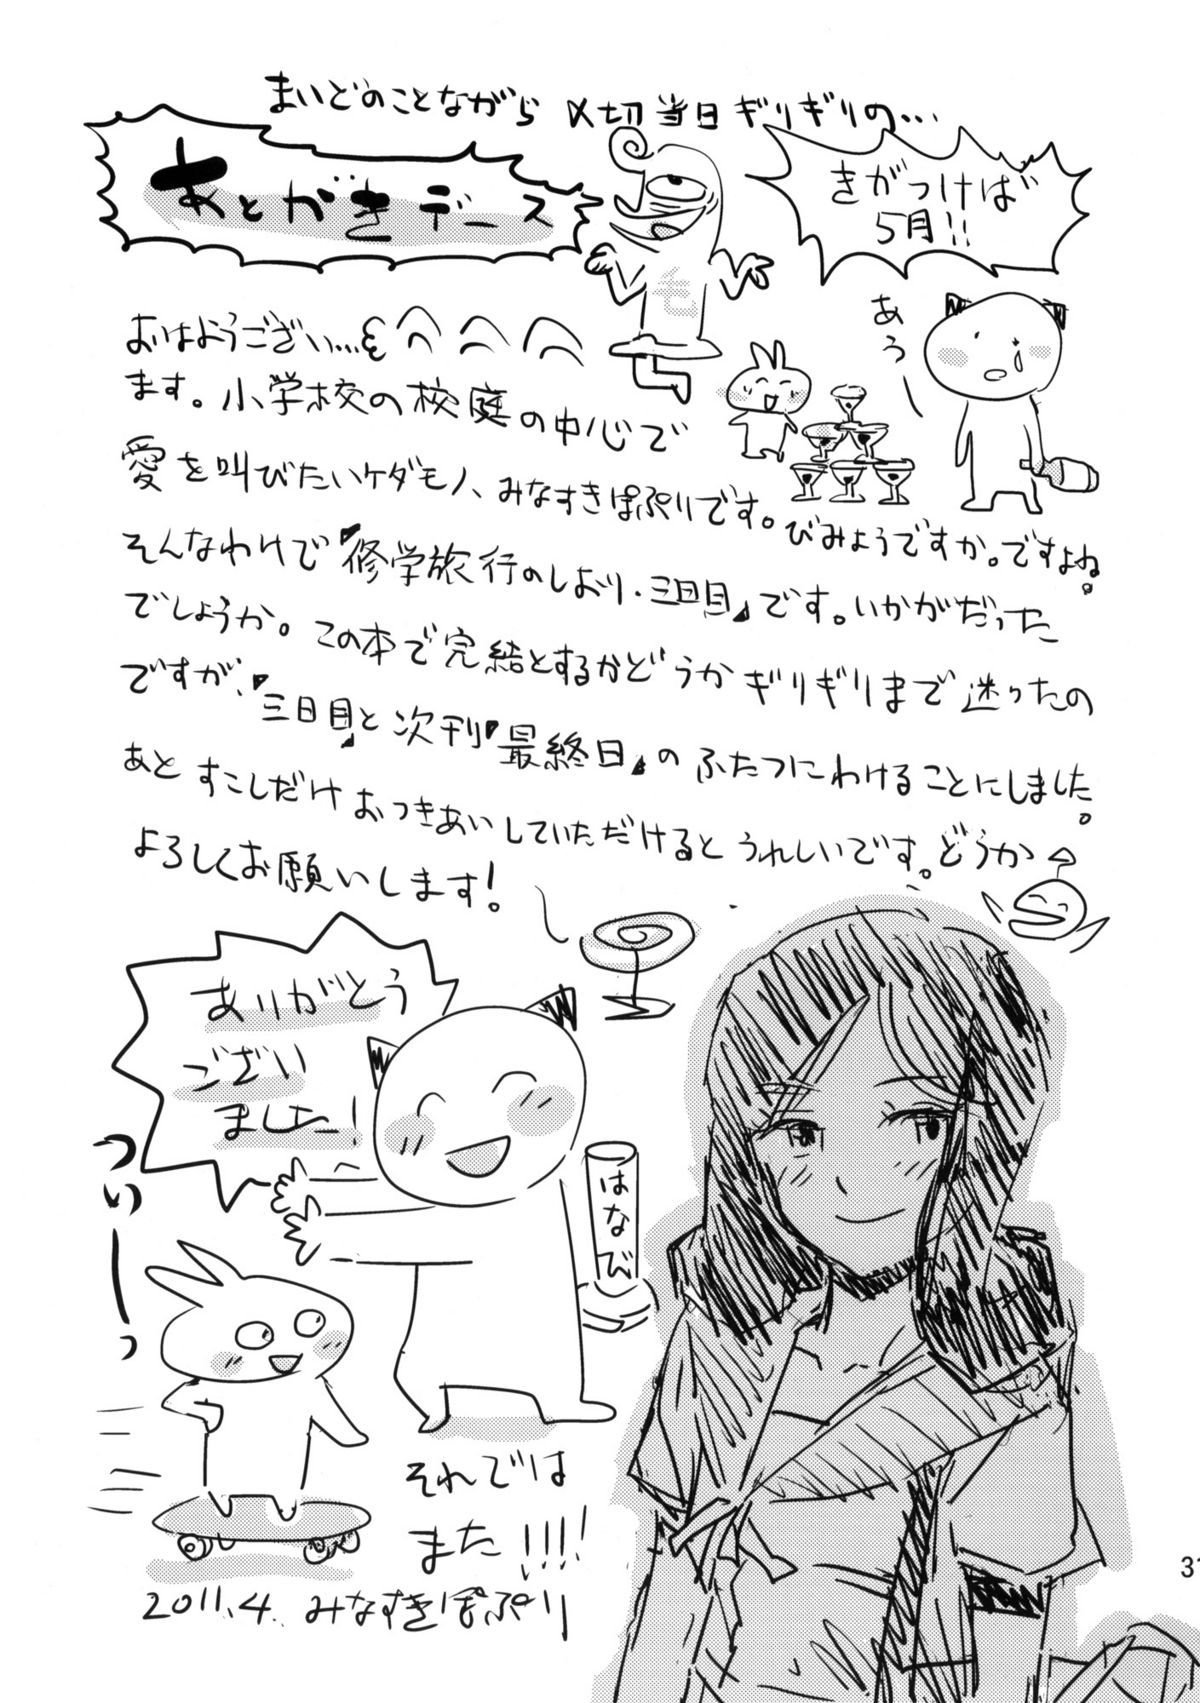 まいどのことながら〆切当日ギリギリの…
あとがきデース
きがつけば
5月!!
も
あう
おはようござい…
ます。小学校の校庭の中心で
愛を叫びたいケダモノ、みなすきぽぷりです。びみょうですか。ですよね。
そんなわけで『修学旅行のしおり・三日目』です。いかがだった
でしょうか。この本で完結とするかどうかギリギリまで迷ったの
ですが、『三日目』と次刊『最終日』のふたつにわけることにしました。
あとすこしだけおつきあいしていただけるとうれしいです。どうか
よろしくお願いします!
ありがとう
ござい
ました!
はなび
ついーっ
それでは
また!!!!
2011.4. みなすきぽぷり